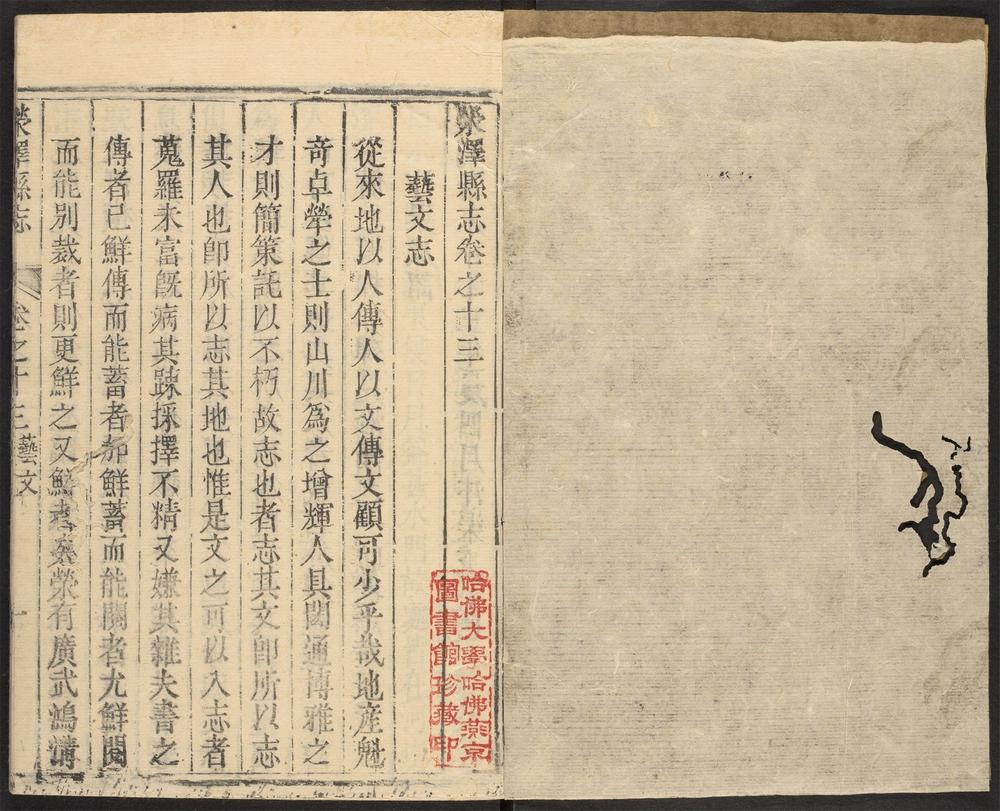 滎澤縣志卷之十三
藝文志
從來地以人傳人以文傳文顧可少乎哉地産魁
竒卓犖之士則山川爲之增輝人具閎通博雅之
才則簡策託以不朽故志也者志其文卽所以志
其人也卽所以志其地也惟是文之可以入志者
蒐羅未富旣病其踈採擇不精又嫌其雜夫書之
傳者已鮮傳而能蓄者却鮮蓄而能閱者尤鮮閱
而能別裁者則更鮮之又鮮者矣滎有廣武鴻溝
滎澤縣志
卷之十三 藝文
一
哈佛大學哈佛燕京
圖書館珍藏印